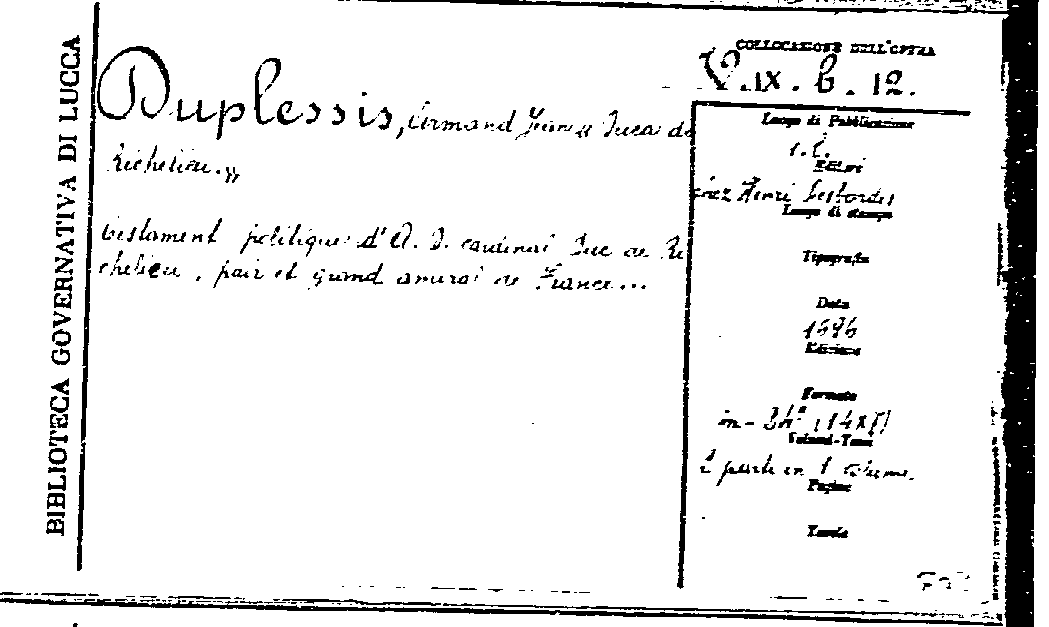 BIBLIOTECA GOVERNATIVA DI LUCCA
Duplessis, Armand Jean « Duca di
Richelieu. »
testament politique d'A. D. cardinal Duc de Ri
chelieu, pair et grand amiral de France...
COLLOCAZIONE DELL'OPERA
IX. b. 12.
Luogo di Pubblicazione
s. l.
Editori
chez Henri Desbordes
Luogo di stampa
Tipografia
Data
1696
Edizione
Formato
in-24°
Volumi-Tomi
2 parti in 1 volume.
Pagine
Tavole